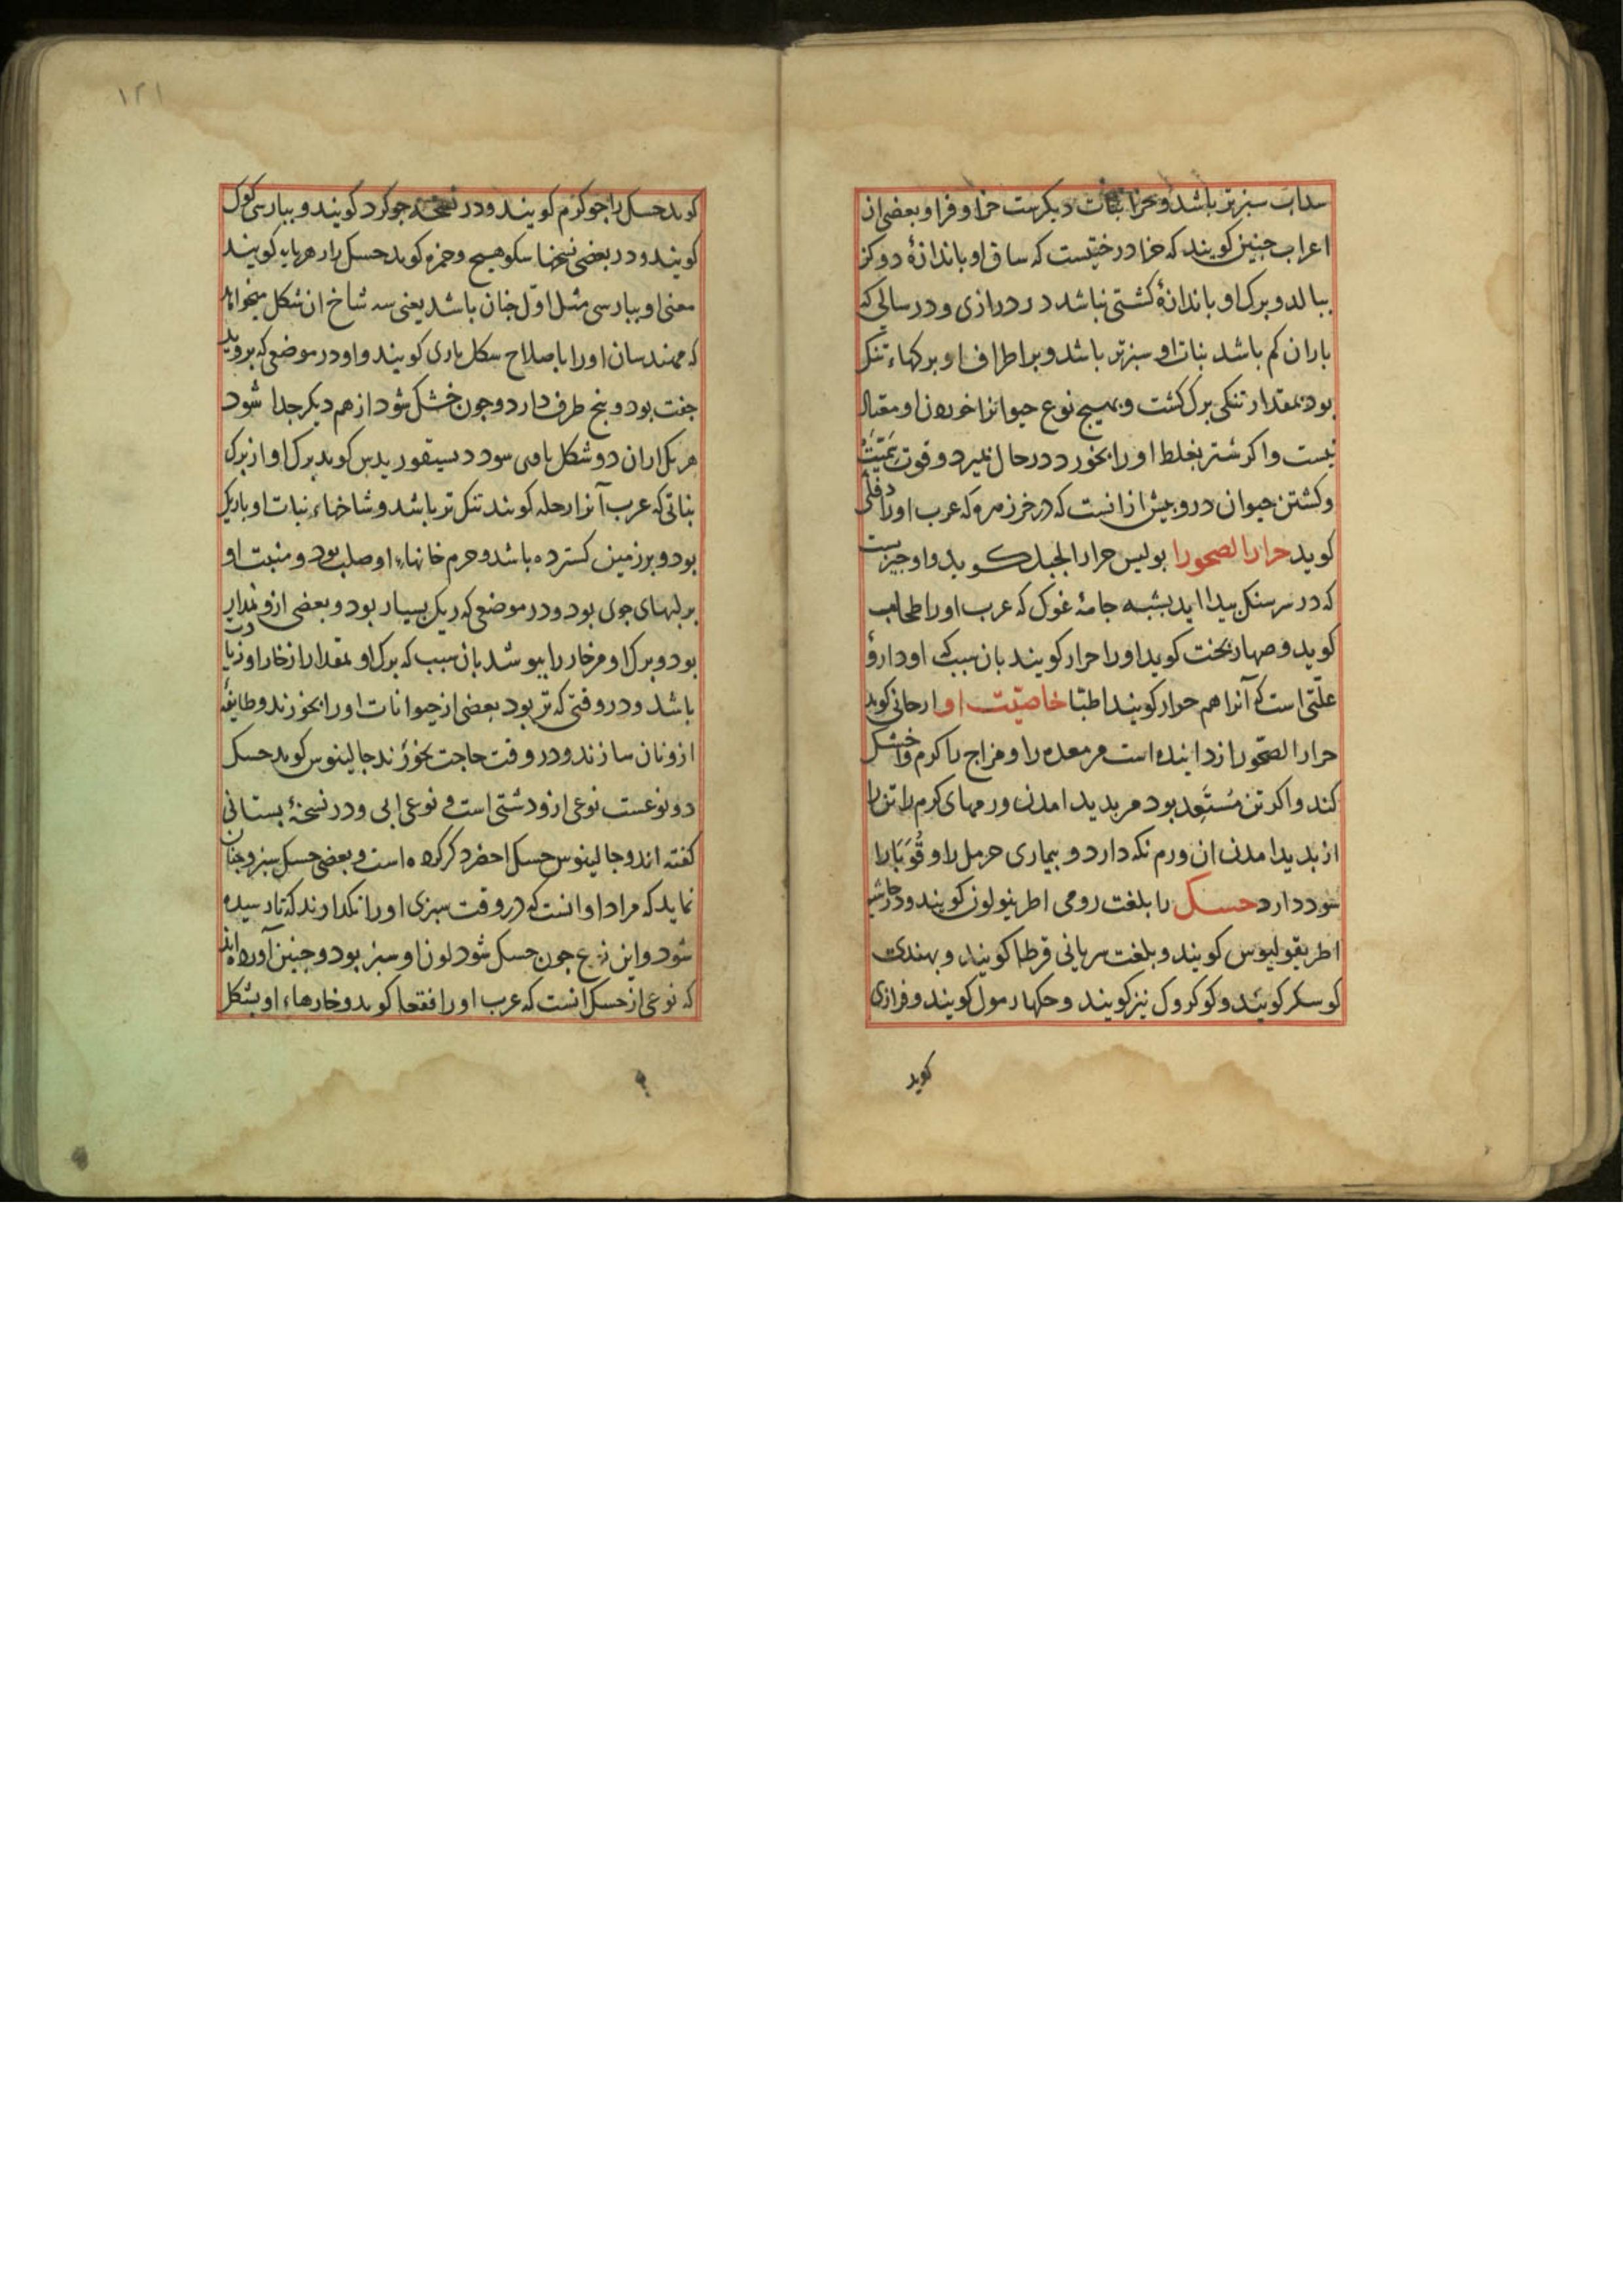 سداب سبزتر باشد و حزا نبات دیکرست حزا و فرا و بعضی از
اعراب جنین کویند که حزا درختیست که ساق او باندازهٔ دو کز
ببالد و برک او باندازهٔ کشتی نباشد در درازی و در سالی که
باران کم باشد نبات او سبزتر باشد و بر اطراف او برکهاء تنک
بود بمقدار تنکی برک کشت و هیج نوع حیوانرا خوردن او معتاد
نیست واکر شتر بغلط او را بخورد در حال بمیرد و قوت سمیت
و کشتن حیوان درو بیش ازانست که در خرزمره که عرب او را دفلی
کوید حرارا لصحورا بولیس حرارالجبل کوید و او جیزیست
که در سر سنک بیدا اید بشبه جامهٔ غوک که عرب او را طحلب
کوید و صهاربخت کوید او را حرار کویند بان سبب که او دارؤ
علتی است که آنرا هم حرار کویند اطبا خاصیت او ارحانی کوید
حرارا لصحور زداینده است مر معده را و مزاج را کرم و خشک
کند واکر تن مستعد بود مر بدید امدن ورمهای کرم را تن را
از بدید امدن ان ورم نکه دارد و بیماری حرمل را و قوبا را
سود دارد حسک را بلغت رومی اطربنولون کویند و در حاشیه
اطریقولیوس کویند و بلغت سریانی قرطا کویند و بهندی
کوسکر کویند و کوکروک نیز کویند و حکهار مول کویند و فرازی
کوید
١٢١
کوید حسک را جوکزم کویند و در نسخه جوکرد کویند و ببارسی کوک
کویند و در بعضی نسخها سکوهیج و حمزه کوید حسک را در هربایه کویند
معنی او ببارسی مثل اول جنان باشد یعنی سه شاخ ان شکل میخواهد
که مهندسان او را باصلاح سکل ناری کویند و او در موضعی که بروید
جفت بود و بنج طرف دارد و جون خشک شود از هم دیکر جدا شود
هر یک ازان دو شکل سود دیسیقوریدس کوید برک او از برک
نباتی که عرب آنرا رجله کویند تنک تر باشد و شاخهاء نبات او باریک
بود و بر زمین کسترده باشد و حرم خانهاء او صلب بود و منبت او
بر لبهای جوی بود و در موضعی که ریک بسیار بود و بعضی ازو نمدار
بود و برک او مر خار را ببوشد بان سبب که برک او بمقدار از خار او زیادت
باشد و در وقتی که تر بود بعضی از حیوانات او را بخورند و طایفهٔ
ازو نان سازند و در وقت حاجت بخورند جالینوس کوید حسک
دو نوعست نوعی ازو دشتی است و نوعی ابی و در نسخهٔ بستانی
کفته اند و جالینوس حسک احضر ذکر کرده است و بعضی حسک سبز و جنان
نماید که مراد او انست که در وقت سبزی او را نکدارند که تا رسیده
شود و این نوع جون حسک شود لون او سبز بود و جنین آورده اند
که نوعی از حسک انست که عرب او را افقحا کوید و خارهاء او بشکل